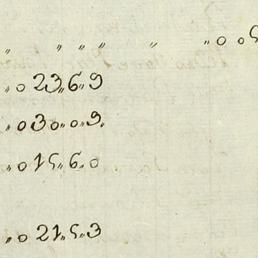 „ „ „ „ „ „ 0 „ 0 5
„ 0 23 „ 6 „ 9
„ 0 30 „ 0 „ 9.
„ 0 15 „ 6 „ 0
„ 0 21 „ 5 „ 3